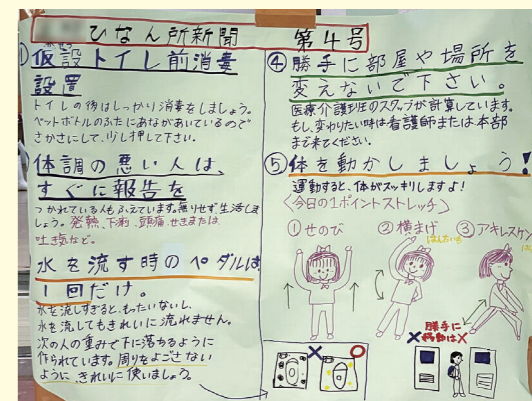 ひなん所新聞 第4号
① 仮設トイレ前消毒
設置
トイレの後はしっかり消毒をしましょう。
ペットボトルのふたにあながあいているので
さかさにして、少し押して下さい。
体調の悪い人は、
すぐに報告を
つかれている人もふえています。無りせず、生活しま
しょう。発熱、下痢、頭痛、せきまたは
吐き気など。
水を流す時のペダルは
1回だけ。
水を流しすぎると、もったいないし、
水を流してもきれいに流れません。
次の人の重みで下に落ちるように
作られています。周りをよごさない
ように きれいに使いましょう。
④ 勝手に部屋や場所を
変えないで下さい。
医療介護班のスタッフが計算しています。
もし、変わりたい時は看護師または本部
まで来てください。
⑤ 体を動かしましょう!
運動すると、体がスッキリしますよ!
<今日の1ポイントストレッチ>
① せのび
② 横まげ
はんたいも
③ アキレスケン
勝手に
移動は×